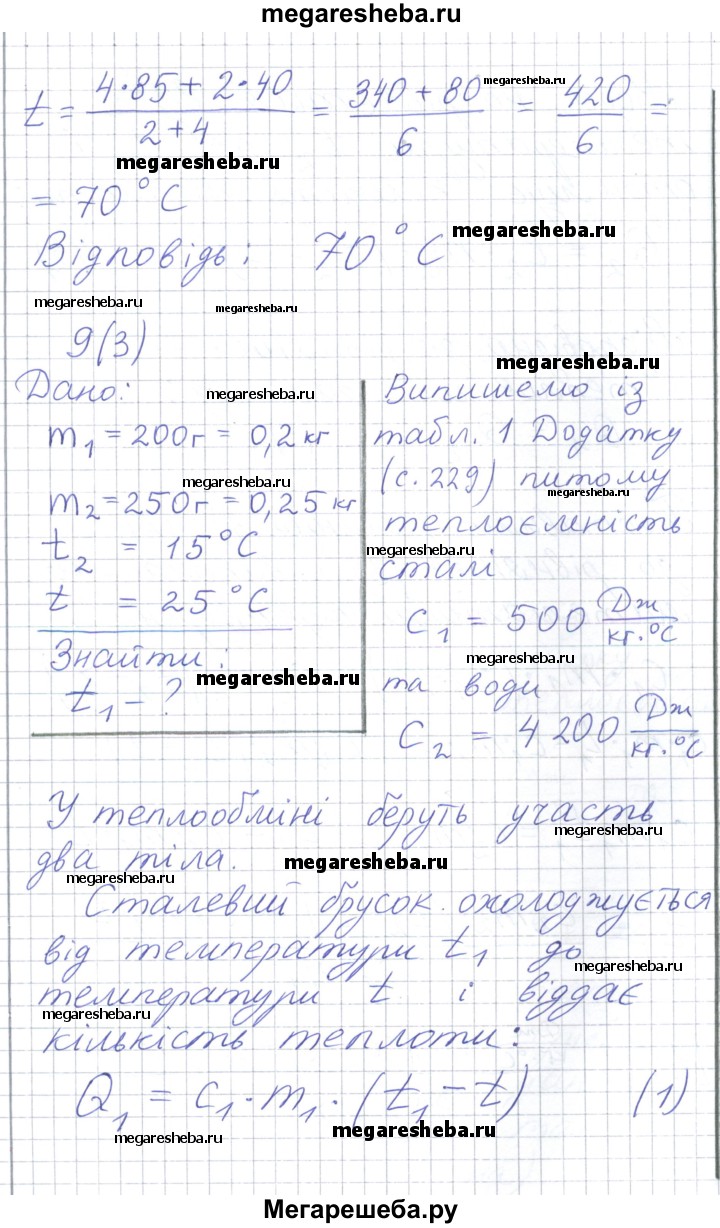 megaresheba.ru
t = (4·85 + 2·40)/(2+4) = (340 + 80)/6 = 420/6 =
megaresheba.ru
megaresheba.ru
= 70 °C
Відповідь: 70 °C
megaresheba.ru
megaresheba.ru
megaresheba.ru
9(3)
megaresheba.ru
Дано:
megaresheba.ru
m₁ = 200г = 0,2 кг
megaresheba.ru
m₂ = 250г = 0,25 кг
t₂ = 15 °C
t = 25 °C
Знайти:
megaresheba.ru
t₁ - ?
Випишемо із
табл. 1 Додатку
(с. 229) питому
megaresheba.ru
теплоємність
megaresheba.ru
сталі
c₁ = 500 Дж/кг·°C
megaresheba.ru
та води
c₂ = 4 200 Дж/кг·°C
У теплообміні беруть участь
megaresheba.ru
два тіла.
megaresheba.ru
megaresheba.ru
Сталевий брусок охолоджується
від температури t₁ до
megaresheba.ru
температури t і віддає
megaresheba.ru
megaresheba.ru
кількість теплоти:
Q₁ = c₁·m₁·(t₁ - t) (1)
megaresheba.ru
megaresheba.ru
Мегарешеба.ру